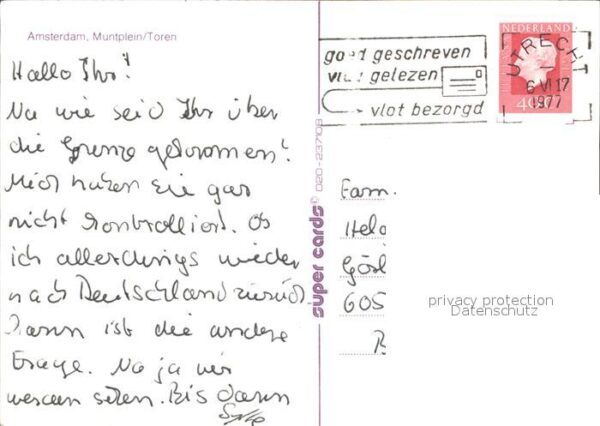 Amsterdam, Muntplein/Toren
Hallo Ihr!
Na wie seid Ihr über
die Grenze gekommen?
Mich haben sie gar
nicht kontrolliert. Ob
ich allerdings wieder
nach Deutschland zurück
kann ist die andere
Frage. Na ja wir
werden sehen. Bis dann
super cards © 020-237108
goed geschreven
vlot gelezen
vlot bezorgd
NEDERLAND
UTRECHT
6 VI 17
1977
40
Fam.
Helo
605
privacy protection
Datenschutz